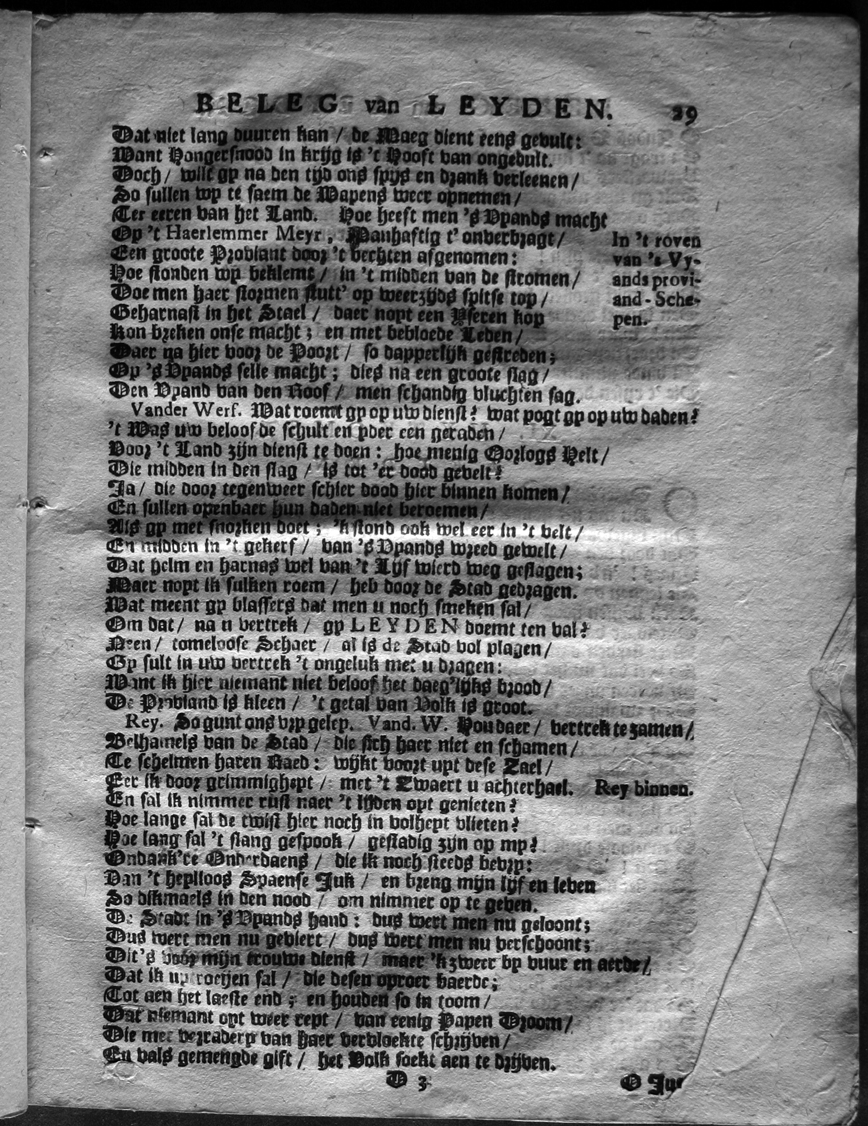 BELEG van LEYDEN. 29
Dat niet lang duuren kan / de Maeg dient eens gevult:
Want Hongersnood in krijg is 't Hooft van ongedult.
Doch / wilt gy na den tijd ons spijs en drank verleenen /
So sullen wy te saem de Wapens weer opnemen /
Ter eeren van het Land. Hoe heeft men 's Vyands macht
Op 't Haerlemmer Meyr, Manhaftig t' onderbragt /
Een groote Proviant door 't vechten afgenomen:
Hoe stonden wy beklemt / in 't midden van de stromen /
Doe men haer stormen stutt' op weerzijds spitse top /
Geharnast in het Stael / daer noyt een Yseren kop
Kon breken onse macht; en met bebloede Leden /
Daer na hier voor de Poort / so dapperlijk gestreden;
Op 's Vyands felle macht; dies na een groote slag /
Den Vyand van den Roof / men schandig vluchten sag.
In 't roven
van 's Vy-
ands provi-
and-Sche-
pen.
Vander Werf. Wat roemt gy op uw dienst? wat pogt gy op uw daden?
't Was uw beloofde schult en yder een geraden /
Voor 't Land zijn dienst te doen: hoe menig Oorlogs Helt /
Die midden in den slag / is tot 'er dood gevelt?
Ja / die door tegenweer schier dood hier binnen komen /
En sullen openbaer hun daden niet beroemen /
Als gy met snorken doet; 'k stond ook wel eer in 't velt /
En midden in 't gekerf / van 's Vyands wreed gewelt /
Dat helm en harnas wel van 't Lijf wierd weg geslagen;
Maer noyt ik sulken roem / heb door de Stad gedragen.
Wat meent gy blaffers dat men u noch smeken sal /
Om dat / na u vertrek / gy LEYDEN doemt ten val?
Neen / tomeloose Schaer / al is de Stad vol plagen /
Gy sult in uw vertrek 't ongeluk met u dragen:
Want ik hier niemant niet beloof het daeg'lijks brood /
De Proviand is kleen / 't getal van Volk is groot.
Rey. So gunt ons vry geley. Vand. W. Houdaer / vertrek te zamen /
Belhamels van de Stad / die sich haer niet en schamen /
Te schelmen haren Raed: wijkt voort uyt dese Zael /
Eer ik door grimmigheyt / met 't Zwaert u achterhael. Rey binnen.
En sal ik nimmer rust naer 't lijden oyt genieten?
Hoe lange sal de twist hier noch in volheyt vlieten?
Hoe lang sal 't slang gespook / gestadig zijn op my?
Ondank're Onderdaens / die ik noch steeds bevry:
Van 't heylloos Spaense Juk / en breng mijn lijf en leven
So dikmaels in den nood / om nimmer op te geven.
De Stadt in 's Vyands hand: dus wert men nu geloont;
Dus wert men nu geviert / dus wert men nu verschoont;
Dit's voor mijn trouwe dienst / maer 'k zweer by vuur en aerde /
Dat ik uytroeijen sal / die desen oproer baerde;
Tot aen het laeste end; en houden so in toom /
Dat niemant oyt weer rept / van eenig Papen Droom /
Die met verradery van haer vervloekte schrijven /
En vals gemengde gift / het Volk soekt aen te drijven.
D 3